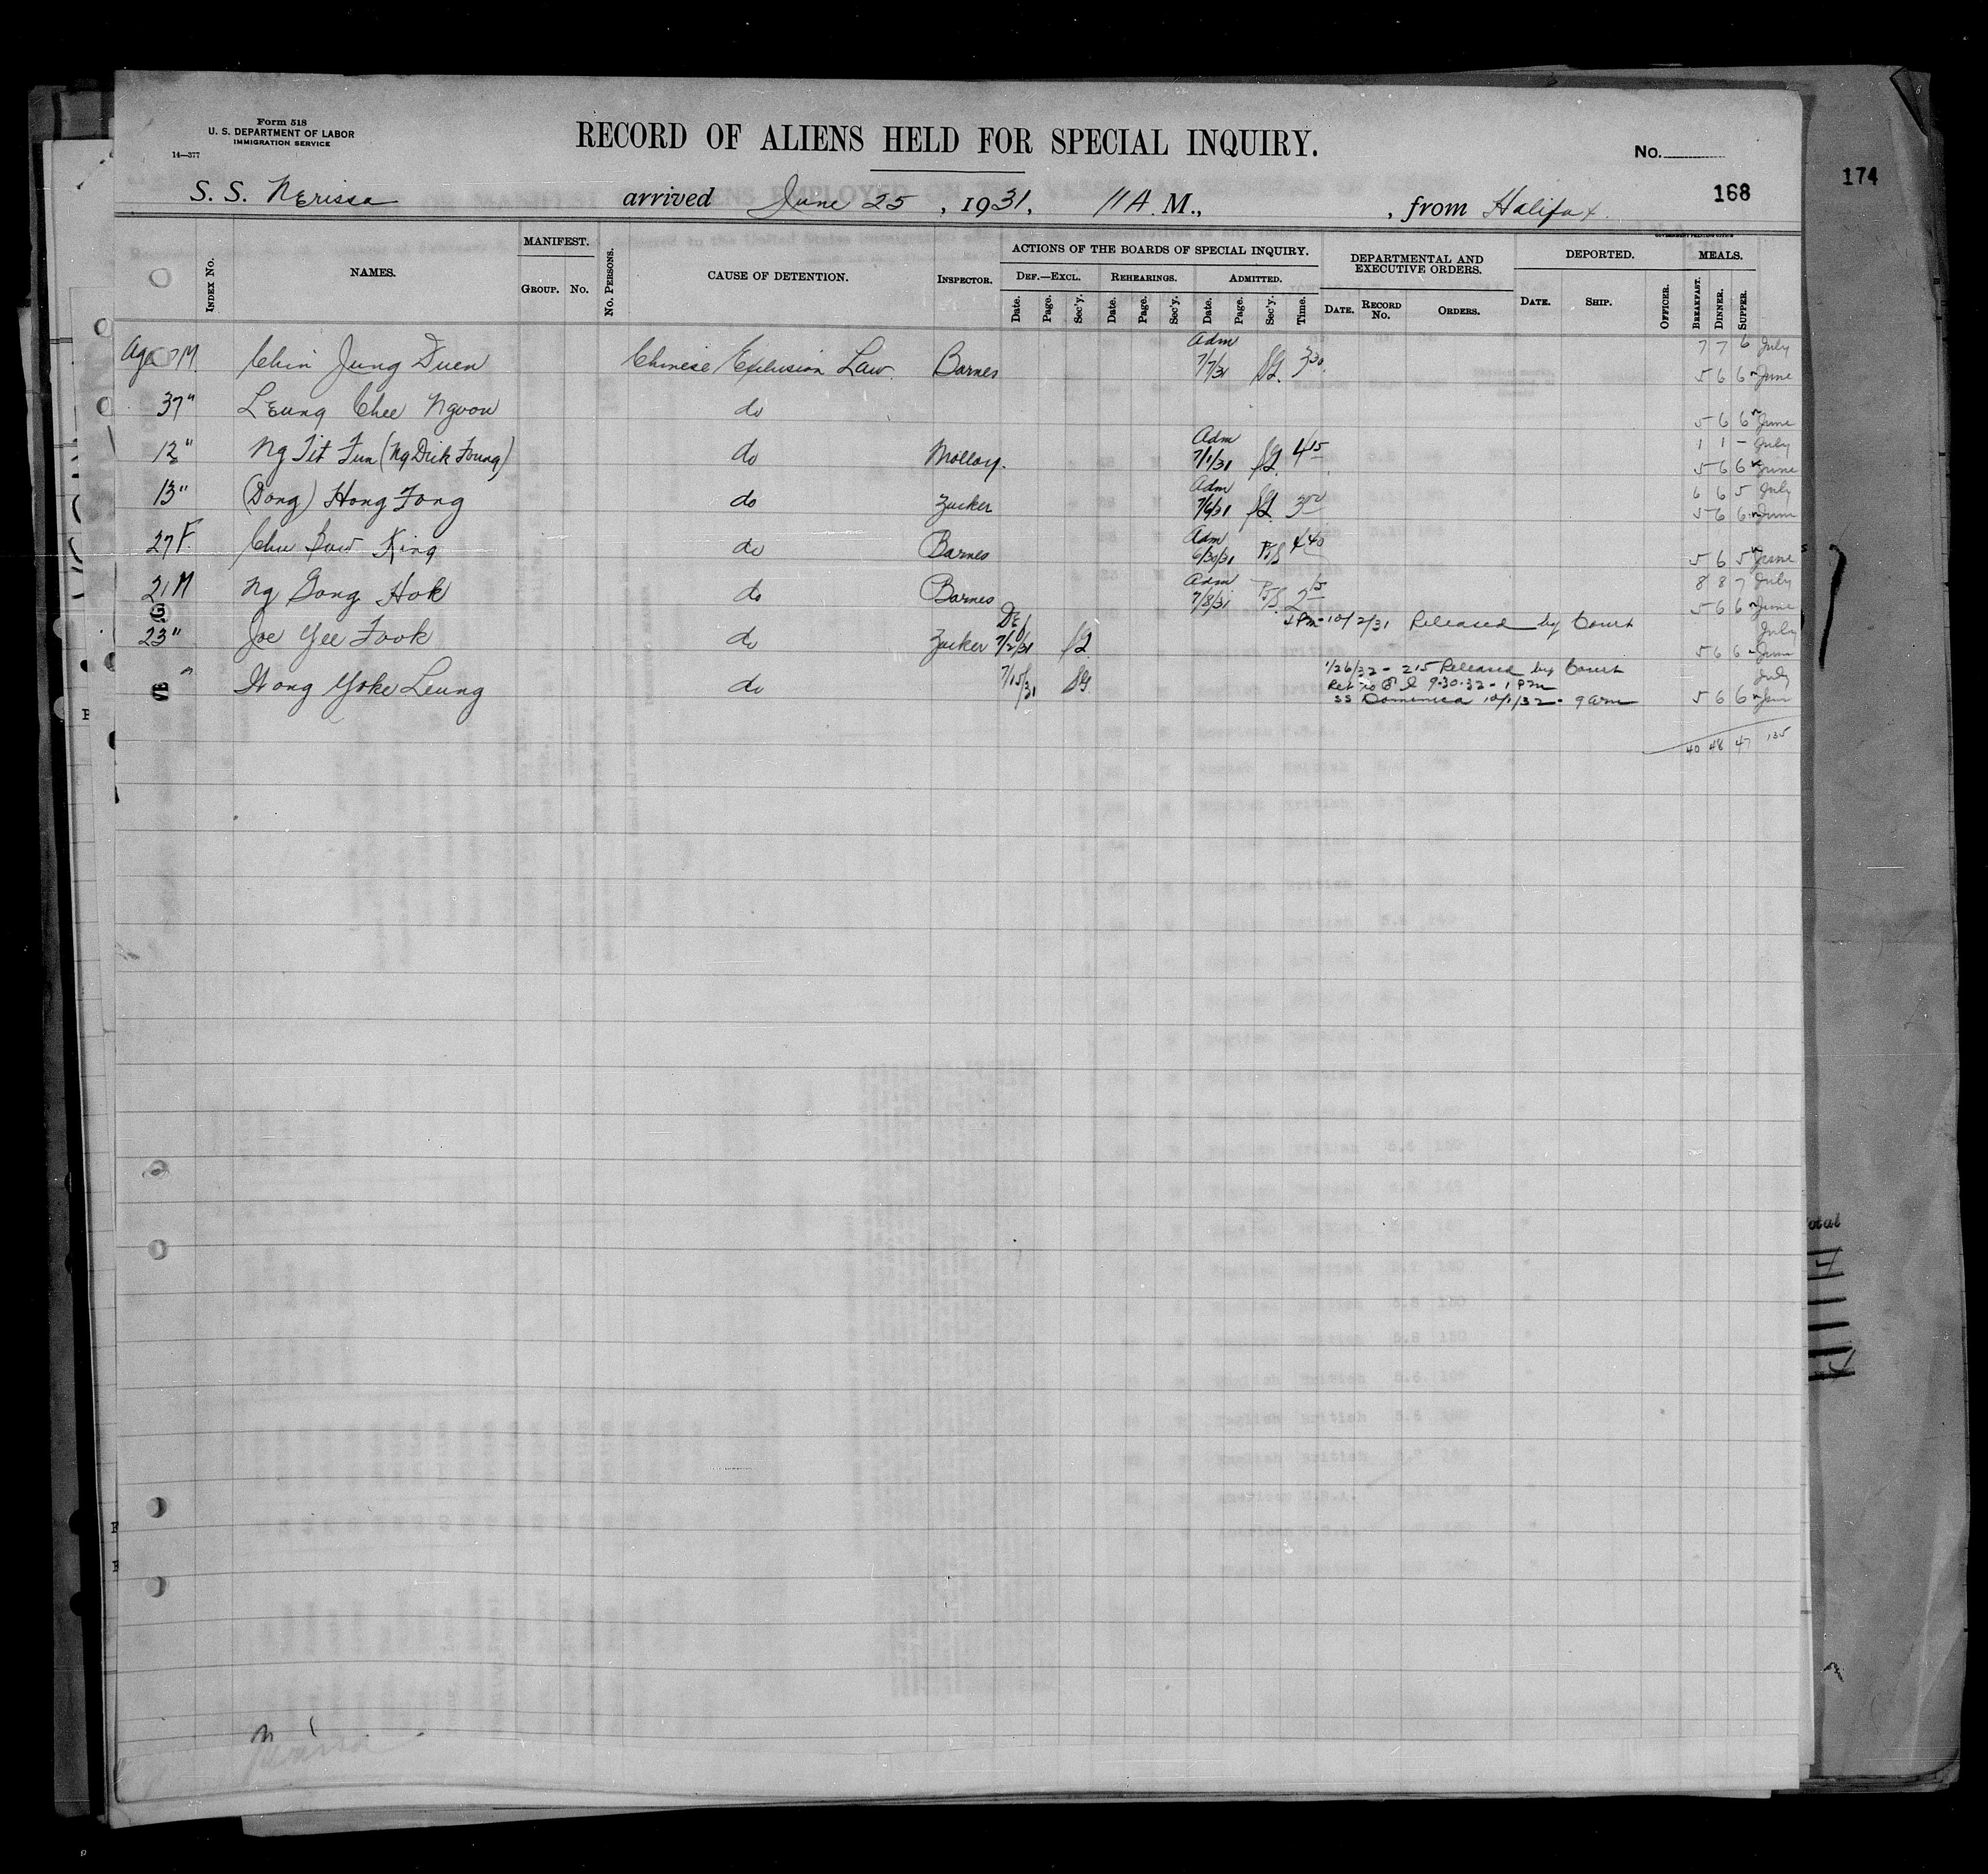 Form 518
U. S. DEPARTMENT OF LABOR
IMMIGRATION SERVICE
14—377
RECORD OF ALIENS HELD FOR SPECIAL INQUIRY.
No.
168
174
S. S. Nerissa arrived June 25, 1931, 11 A. M., , from Halifax.
INDEX No. NAMES. MANIFEST. GROUP. No. No. PERSONS. CAUSE OF DETENTION. INSPECTOR. ACTIONS OF THE BOARDS OF SPECIAL INQUIRY. DEF.—EXCL. Date. Page. Sec'y. REHEARINGS. Date. Page. Sec'y. ADMITTED. Date. Page. Sec'y. Time. DEPARTMENTAL AND EXECUTIVE ORDERS. DATE. RECORD No. ORDERS. DEPORTED. DATE. SHIP. OFFICER. MEALS. BREAKFAST. DINNER. SUPPER.
Age M. Chin Jung Duen Chinese Exclusion Law. Barnes Adm 7/7/31 SG. 3 30 7 7 6 July
5 6 6 June
37 " Leung Chee Ngoon do 5 6 6 June
12 " Ng Tit Fun (Ng Dick Foung) do Molloy. Adm 7/1/31 SG. 4 15 1 1 - July
5 6 6 June
13 " (Dong) Hong Fong do Zucker Adm 7/6/31 SG. 3 00 6 6 5 July
5 6 6 June
27 F. Chu Sow King do Barnes Adm 6/30/31 4 40 5 6 5 June
21 M Ng Gong Hok do Barnes Adm 7/8/31 2 15 8 8 7 July
5 6 6 June
23 " Joe Yee Fook do Zucker Def 7/2/31 SG. 10/2/31 Released by Court July
5 6 6 June
" Wong Yoke Leung do 7/15/31 SG. 1/26/32 - 215 Released by Court July
Ret to E I 9-30-32 - 1 Pm
SS Dominica 10/1/32 - 9 am 5 6 6 Jun
40 48 47 135
otal
Nerissa